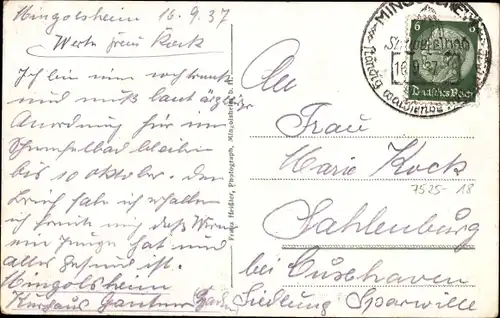 Mingolsheim 16.9.37
Werte Frau Kock
Ich bin nun noch krank
und muß laut ärztlicher
Anordnung hier im
Schwefelbad bleiben
bis 10 Oktober. Den
Brief habe ich erhalten
ich freute mich daß
ein Junge hat und
alles gesund ist.
Mingolsheim
Kurhaus Baden
Franz Heißler, Photograph, Mingolsheim b.
An
Frau
Marie Kock
7525-18
Sahlenburg
bei Cuxhaven
Siedlung Sparwille
MINGOLSHEIM
Schwefelbad
16.9.37
6 6
Deutsches Reich